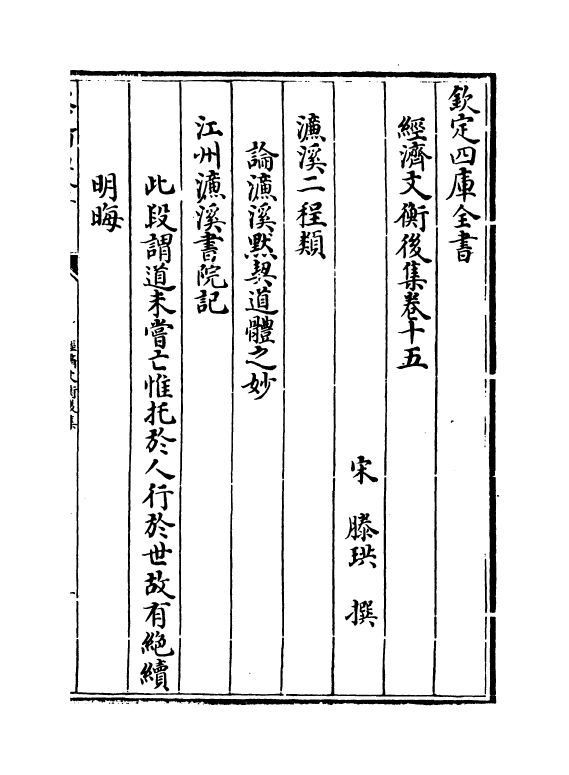 欽定四庫全書
經濟文衡後集卷十五
宋　滕珙　撰
濂溪二程類
論濂溪黙契道體之妙
江州濂溪書院記
此段謂道未嘗亡惟托於人行於世故有絶續
明晦